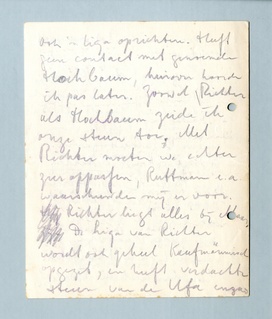 ook 'n liga oprichten. Heeft
geen contact met genoemde
Hochbaum, hiervan hoorde
ik pas later. Zoowel Richter
als Hochbaum zeide ik
onze steun toe. Met
Richter moeten we echter
zeer oppassen, Ruttmann e.a.
waarschuwden mij er voor.
Richter liegt alles bij elkaar.
De liga van Richter
wordt ook geheel Kaufmännisch
opgezet, en heeft verdachte
steun van de Ufa